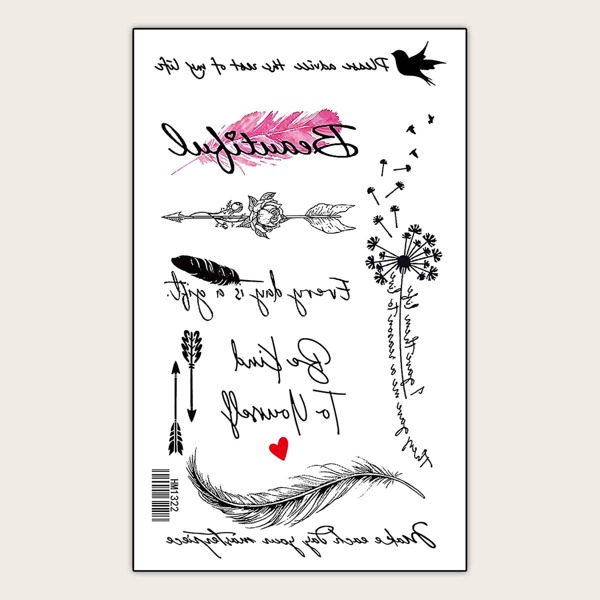 Please advice the rest of my life
Beautiful
Every day is a gift.
Be Kind
To Yourself
HM1322
Make each day your masterpiece